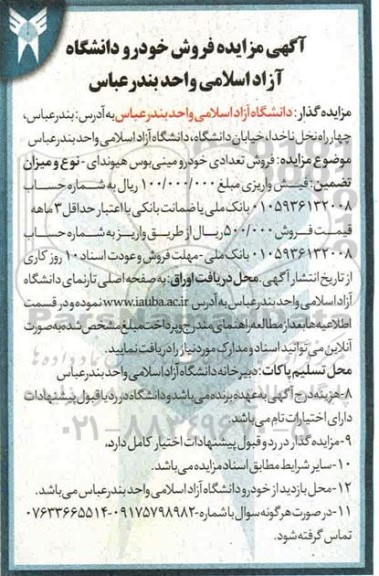 آگهی مزایده فروش خودرو دانشگاه
آزاد اسلامی واحد بندرعباس
مزایده گذار: دانشگاه آزاد اسلامی واحد بندرعباس به آدرس: بندرعباس،
چهارراه نخل ناخدا، خیابان دانشگاه، دانشگاه آزاد اسلامی واحد بندرعباس
موضوع مزایده: فروش تعدادی خودرو مینی بوس هیوندای - نوع و میزان
تضمین: فیش واریزی مبلغ ۱۰۰/۰۰۰/۰۰۰ ریال به شماره حساب
۰۱۰۵۹۳۶۱۳۲۰۰۸ بانک ملی یا ضمانت بانکی با اعتبار حداقل ۳ ماهه
قیمت فروش ۵۰۰/۰۰۰ ریال از طریق واریز به شماره حساب
۰۱۰۵۹۳۶۱۳۲۰۰۸ بانک ملی - مهلت فروش و عودت اسناد ۱۰ روز کاری
از تاریخ انتشار آگهی. محل دریافت اوراق: به صفحه اصلی تارنمای دانشگاه
آزاد اسلامی واحد بندرعباس به آدرس www.iauba.ac.ir نموده و در قسمت
اطلاعیه ها بعد از مطالعه راهنمای مندرج و پرداخت مبلغ مشخص شده به صورت
آنلاین می توانید اسناد و مدارک مورد نیاز را دریافت نمایید.
محل تسلیم پاکات: دبیرخانه دانشگاه آزاد اسلامی واحد بندرعباس
۸- هزینه درج آگهی به عهده برنده می باشد و دانشگاه در رد یا قبول پیشنهادات
دارای اختیارات تام می باشد.
۹- مزایده گذار در رد و قبول پیشنهادات اختیار کامل دارد.
۱۰- سایر شرایط مطابق اسناد مزایده می باشد.
۱۲- محل بازدید از خودرو دانشگاه آزاد اسلامی واحد بندرعباس می باشد.
۱۱- در صورت هرگونه سوال با شماره ۰۹۱۷۵۷۹۸۹۸۲-۰۷۶۳۳۶۶۵۵۱۴
تماس گرفته شود.